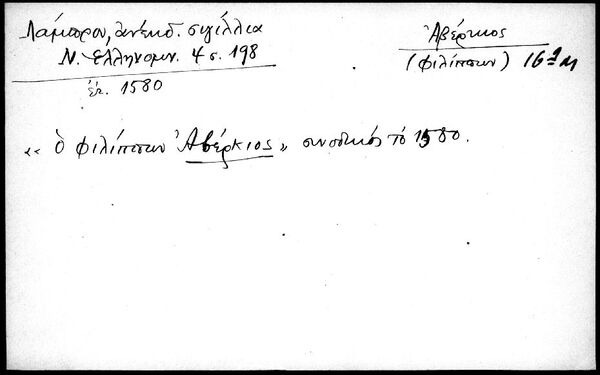 Λάμπρου, ἀνέκδ. σιγίλλια
Ν. Ἑλληνομν. 4 σ. 198
ἔτ. 1580
Ἀβέρκιος
(Φιλίππων) 16ος μ
«ὁ Φιλίππων Ἀβέρκιος» συνοδικός τό 1580.